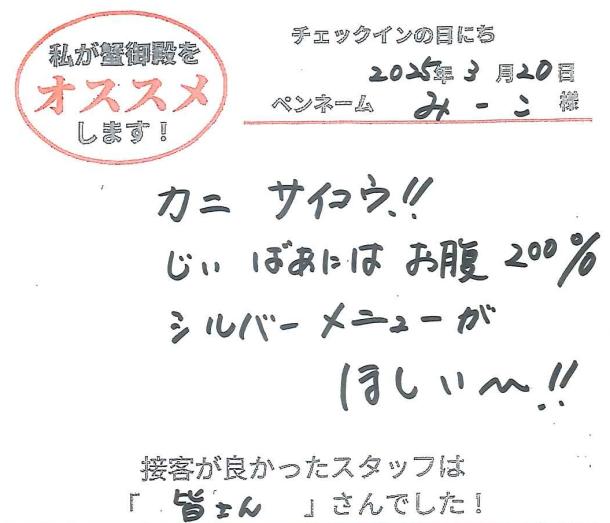 私が蟹御殿を
オススメ
します！
チェックインの日にち
2025年 3月20日
ペンネーム みーこ 様
カニ サイコウ!!
じぃ ばあには お腹 200%
シルバーメニューが
ほしぃ〜!!
接客が良かったスタッフは
「 皆さん 」さんでした！